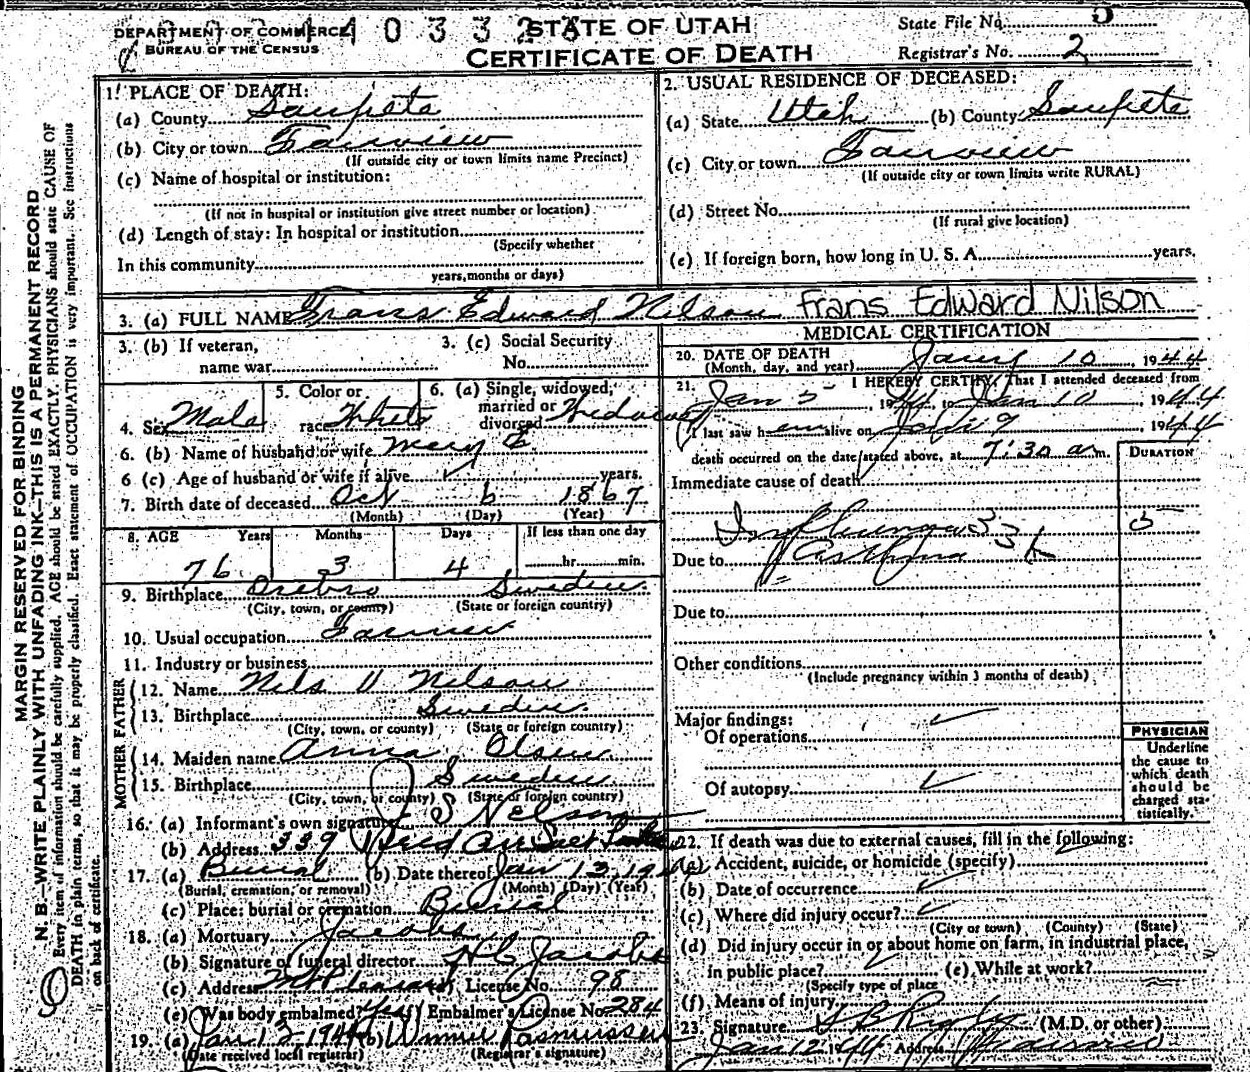 DEPARTMENT OF COMMERCE
BUREAU OF THE CENSUS
STATE OF UTAH
CERTIFICATE OF DEATH
State File No. 5
Registrar's No. 2
MARGIN RESERVED FOR BINDING
N. B.—WRITE PLAINLY WITH UNFADING INK—THIS IS A PERMANENT RECORD
Every item of information should be carefully supplied. AGE should be stated EXACTLY. PHYSICIANS should state CAUSE OF
DEATH in plain terms, so that it may be properly classified. Exact statement of OCCUPATION is very important. See instructions
on back of certificate.
1. PLACE OF DEATH:
(a) County Sanpete
(b) City or town Fairview
(If outside city or town limits name Precinct)
(c) Name of hospital or institution:
(If not in hospital or institution give street number or location)
(d) Length of stay: In hospital or institution
(Specify whether
In this community
years, months or days)
2. USUAL RESIDENCE OF DECEASED:
(a) State Utah (b) County Sanpete
(c) City or town Fairview
(If outside city or town limits write RURAL)
(d) Street No.
(If rural give location)
(e) If foreign born, how long in U. S. A. years.
3. (a) FULL NAME Frans Edward Nilson Frans Edward Nilson
3. (b) If veteran,
name war
3. (c) Social Security
No.
4. Sex Male
5. Color or
race White
6. (a) Single, widowed,
married or
divorced Widowed
6. (b) Name of husband or wife Mary E
6 (c) Age of husband or wife if alive years.
7. Birth date of deceased Oct 6 1867
(Month) (Day) (Year)
8. AGE Years Months Days If less than one day
76 3 4 hr. min.
9. Birthplace Orebro Sweden
(City, town, or county) (State or foreign country)
10. Usual occupation Farmer
11. Industry or business
FATHER
12. Name Nils Nilson
13. Birthplace Sweden
(City, town, or county) (State or foreign country)
MOTHER
14. Maiden name Anna Olsen
15. Birthplace Sweden
(City, town, or county) (State or foreign country)
16. (a) Informant's own signature J S Nelson
(b) Address 339 Salt Lake
17. (a) Burial (b) Date thereof Jan 13, 1944
(Burial, cremation, or removal) (Month) (Day) (Year)
(c) Place: burial or cremation Burial
18. (a) Mortuary Jacobs
(b) Signature of funeral director H C Jacobs
(c) Address Mt Pleasant License No. 98
(e) Was body embalmed? Yes Embalmer's License No. 284
19. (a) Jan 12, 1944 (b) Winnie Rasmussen
(Date received local registrar) (Registrar's signature)
MEDICAL CERTIFICATION
20. DATE OF DEATH
(Month, day, and year) Jany 10, 1944
21. I HEREBY CERTIFY, That I attended deceased from
Jan 5, 1944, to Jan 10, 1944
I last saw him alive on 9 1944
death occurred on the date stated above, at 7:30 a m.
DURATION
Immediate cause of death
Influenza 33 5
Due to Asthma
Due to
Other conditions
(Include pregnancy within 3 months of death)
Major findings:
Of operations
Of autopsy
PHYSICIAN
Underline
the cause to
which death
should be
charged sta-
tistically.
22. If death was due to external causes, fill in the following:
(a) Accident, suicide, or homicide (specify)
(b) Date of occurrence
(c) Where did injury occur?
(City or town) (County) (State)
(d) Did injury occur in or about home on farm, in industrial place,
in public place? (e) While at work?
(Specify type of place
(f) Means of injury
23. Signature (M.D. or other)
Jan 12 1944 Address